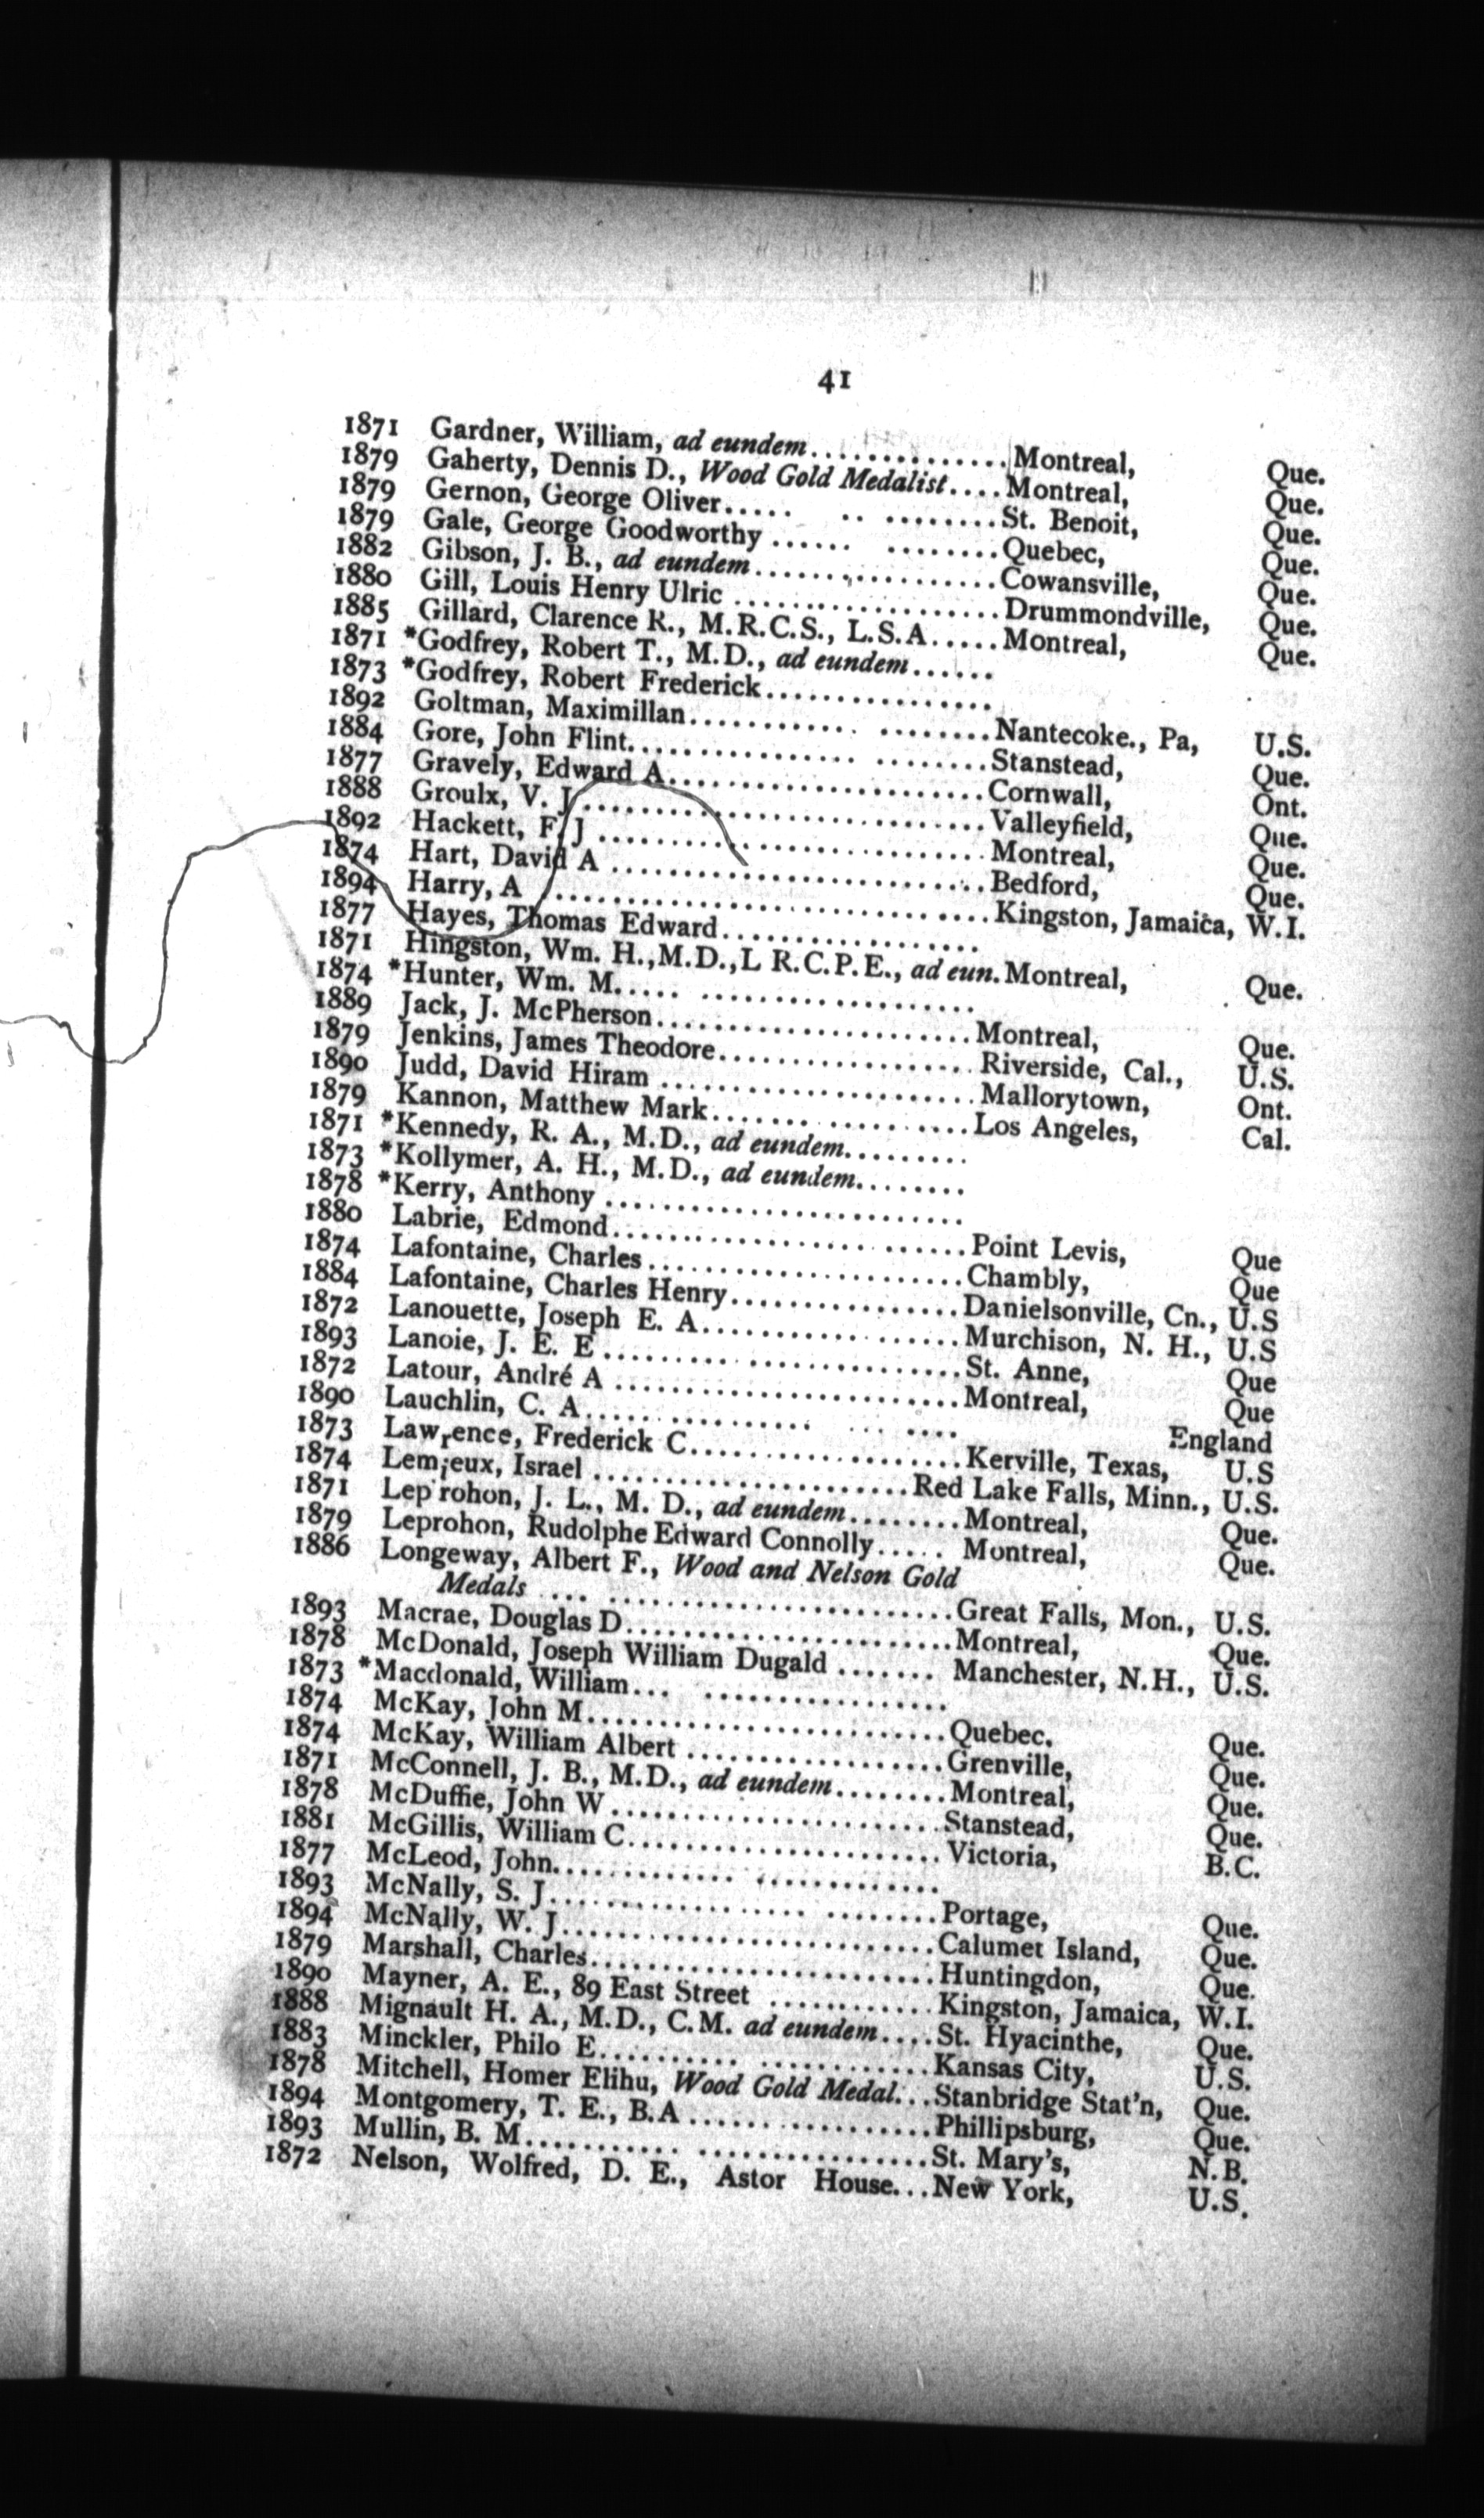 41
1871 Gardner, William, ad eundem..............Montreal, Que.
1879 Gaherty, Dennis D., Wood Gold Medalist....Montreal, Que.
1879 Gernon, George Oliver..... .. ........St. Benoit, Que.
1879 Gale, George Goodworthy ...... ........Quebec, Que.
1882 Gibson, J. B., ad eundem.................Cowansville, Que.
1880 Gill, Louis Henry Ulric ..................Drummondville, Que.
1885 Gillard, Clarence R., M.R.C.S., L.S.A.....Montreal, Que.
1871 *Godfrey, Robert T., M.D., ad eundem......
1873 *Godfrey, Robert Frederick................
1892 Goltman, Maximillan........... ........Nantecoke., Pa, U.S.
1884 Gore, John Flint................. ........Stanstead, Que.
1877 Gravely, Edward A......................Cornwall, Ont.
1888 Groulx, V. J............................Valleyfield, Que.
1892 Hackett, F. J ...........................Montreal, Que.
1874 Hart, David A ..........................Bedford, Que.
1894 Harry, A ..............................Kingston, Jamaica, W.I.
1877 Hayes, Thomas Edward..................
1871 Hingston, Wm. H.,M.D.,L R.C.P.E., ad eun.Montreal, Que.
1874 *Hunter, Wm. M..... ...................
1889 Jack, J. McPherson......................Montreal, Que.
1879 Jenkins, James Theodore.................Riverside, Cal., U.S.
1890 Judd, David Hiram ......................Mallorytown, Ont.
1879 Kannon, Matthew Mark....... ..........Los Angeles, Cal.
1871 *Kennedy, R. A., M.D., ad eundem.........
1873 *Kollymer, A. H., M.D., ad eundem........
1878 *Kerry, Anthony .........................
1880 Labrie, Edmond................. ......Point Levis, Que
1874 Lafontaine, Charles......................Chambly, Que
1884 Lafontaine, Charles Henry................Danielsonville, Cn., U.S
1872 Lanouette, Joseph E. A........... ......Murchison, N. H., U.S
1893 Lanoie, J. E. E ........ ...............St. Anne, Que
1872 Latour, André A ........................Montreal, Que
1890 Lauchlin, C. A..... .......... ... .... England
1873 Lawrence, Frederick C...................Kerville, Texas, U.S
1874 Lemieux, Israel ......................Red Lake Falls, Minn., U.S.
1871 Leprohon, J. L., M. D., ad eundem........Montreal, Que.
1879 Leprohon, Rudolphe Edward Connolly..... Montreal, Que.
1886 Longeway, Albert F., Wood and Nelson Gold
Medals .... .......................Great Falls, Mon., U.S.
1893 Macrae, Douglas D.......................Montreal, Que.
1878 McDonald, Joseph William Dugald ....... Manchester, N.H., U.S.
1873 *Macdonald, William... .................
1874 McKay, John M.........................Quebec. Que.
1874 McKay, William Albert ..................Grenville, Que.
1871 McConnell, J. B., M.D., ad eundem........Montreal, Que.
1878 McDuffie, John W.......................Stanstead, Que.
1881 McGillis, William C......................Victoria, B.C.
1877 McLeod, John............. .............
1893 McNally, S. J.................. ........Portage, Que.
1894 McNally, W. J..........................Calumet Island, Que.
1879 Marshall, Charles........................Huntingdon, Que.
1890 Mayner, A. E., 89 East Street ............Kingston, Jamaica, W.I.
1888 Mignault H. A., M.D., C.M. ad eundem....St. Hyacinthe, Que.
1883 Minckler, Philo E.......... ............Kansas City, U.S.
1878 Mitchell, Homer Elihu, Wood Gold Medal...Stanbridge Stat'n, Que.
1894 Montgomery, T. E., B.A .................Phillipsburg, Que.
1893 Mullin, B. M........... ................St. Mary's, N.B.
1872 Nelson, Wolfred, D. E., Astor House...New York, U.S.